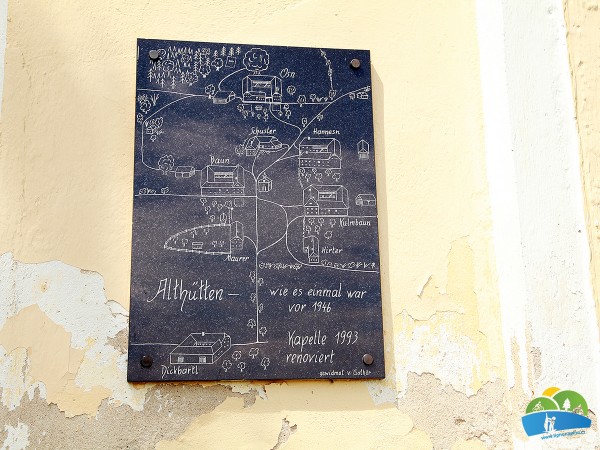 Osn
Schuster
Hannesn
Baun
Kulmbaun
Maurer
Hirter
Althütten —
wie es einmal war
vor 1946
Kapelle 1993
renoviert
Dickbartl
gewidmet v.